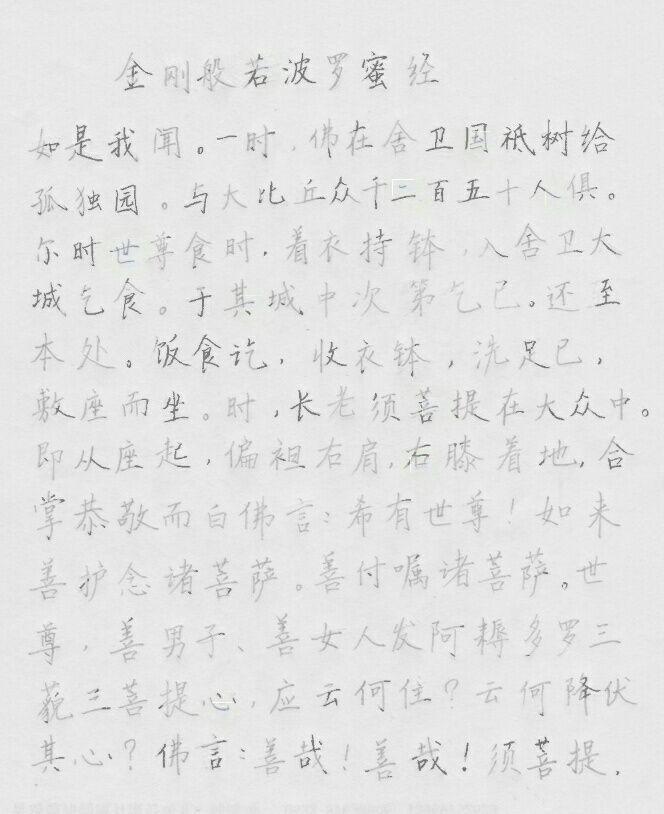 金刚般若波罗蜜经
如是我闻。一时,佛在舍卫国祗树给
孤独园。与大比丘众千二百五十人俱。
尔时世尊食时,着衣持钵,入舍卫大
城乞食。于其城中次第乞已。还至
本处。饭食讫,收衣钵,洗足已,
敷座而坐。时,长老须菩提在大众中。
即从座起,偏袒右肩,右膝着地,合
掌恭敬而白佛言:希有世尊!如来
善护念诸菩萨。善付嘱诸菩萨。世
尊,善男子、善女人发阿耨多罗三
藐三菩提心,应云何住?云何降伏
其心?佛言:善哉!善哉!须菩提,